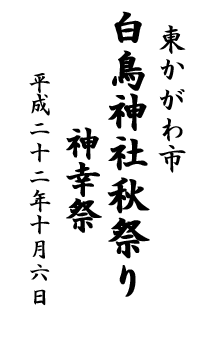 東かがわ市
白鳥神社秋祭り
神幸祭
平成二十二年十月六日